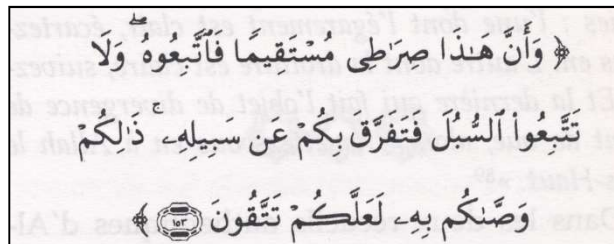 ﴿ وَأَنَّ هَـٰذَا صِرَٰطِى مُسْتَقِيمًا فَٱتَّبِعُوهُ ۖ وَلَا
تَتَّبِعُوا۟ ٱلسُّبُلَ فَتَفَرَّقَ بِكُمْ عَن سَبِيلِهِۦ ۚ ذَٰلِكُمْ
وَصَّىٰكُم بِهِۦ لَعَلَّكُمْ تَتَّقُونَ ١٥٣ ﴾